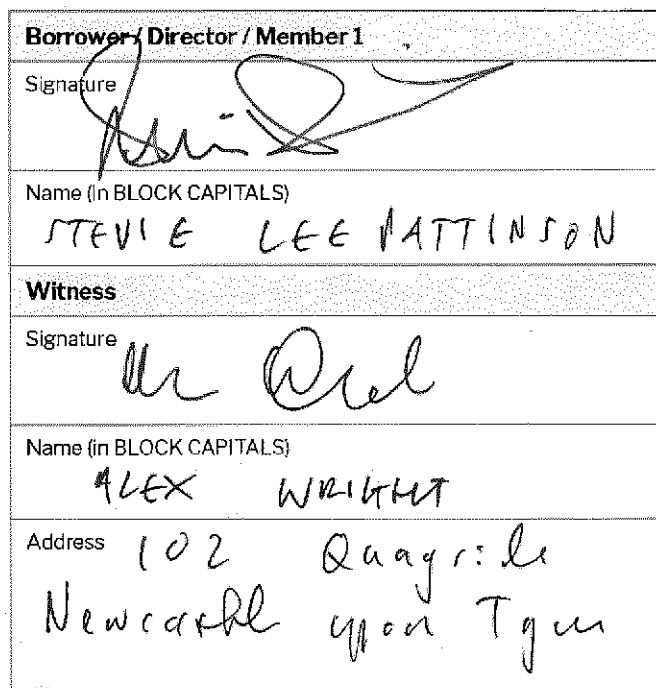 Borrower / Director / Member 1
Signature
Name (in BLOCK CAPITALS)
STEVIE LEE PATTINSON
Witness
Signature
Name (in BLOCK CAPITALS)
ALEX WRIGHT
Address 102 Quayside
Newcastle upon Tyne